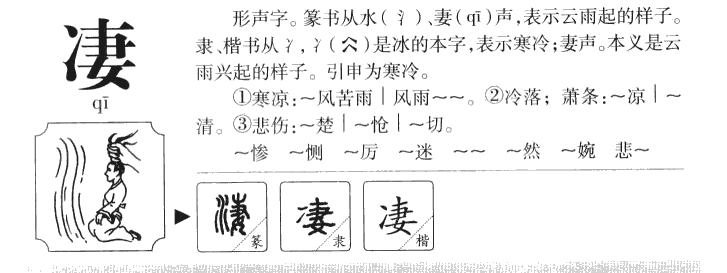 凄
qī
形声字。篆书从水(氵)、妻(qī)声,表示云雨起的样子。
隶、楷书从冫,冫(仌)是冰的本字,表示寒冷;妻声。本义是云
雨兴起的样子。引申为寒冷。
①寒凉:～风苦雨｜风雨～～。②冷落;萧条:～凉｜～
清。③悲伤:～楚｜～怆｜～切。
～惨 ～恻 ～厉 ～迷 ～～ ～然 ～婉 悲～
凄 篆 凄 隶 凄 楷